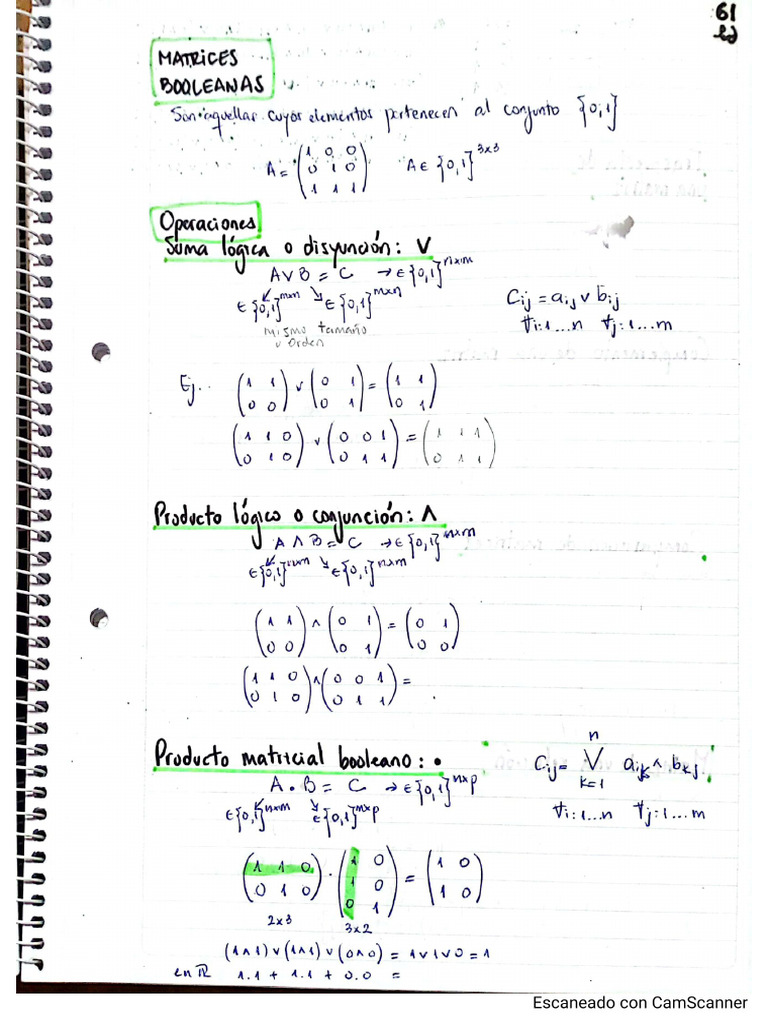 61
MATRICES
BOOLEANAS
Son aquellas cuyos elementos pertenecen al conjunto {0,1}
A = (1 0 0 / 0 1 0 / 1 1 1) A ∈ {0,1}^3x3
Operaciones
Suma lógica o disyunción: V
A ∨ B = C → ∈ {0,1}^nxm
∈ {0,1}^mxn ∈ {0,1}^mxn
mismo tamaño
u orden
Cij = aij ∨ bij
∀i:1...n ∀j:1...m
Ej.
(1 1 / 0 0) ∨ (0 1 / 0 1) = (1 1 / 0 1)
(1 1 0 / 0 1 0) ∨ (0 0 1 / 0 1 1) = (1 1 1 / 0 1 1)
Producto lógico o conjunción: Λ
A ∧ B = C → ∈ {0,1}^nxm
∈ {0,1}^nxm ∈ {0,1}^nxm
(1 1 / 0 0) ∧ (0 1 / 0 1) = (0 1 / 0 0)
(1 1 0 / 0 1 0) ∧ (0 0 1 / 0 1 1) =
Producto matricial booleano: •
A • B = C → ∈ {0,1}^nxp
∈ {0,1}^nxm ∈ {0,1}^mxp
n
Cij = ⋁ aik ∧ bkj
k=1
∀i:1...n ∀j:1...m
(1 1 0 / 0 1 0) · (1 0 / 1 0 / 0 1) = (1 0 / 1 0)
2x3 3x2
(1∧1) ∨ (1∧1) ∨ (0∧0) = 1∨1∨0 = 1
en ℝ 1.1 + 1.1 + 0.0 =
Escaneado con CamScanner